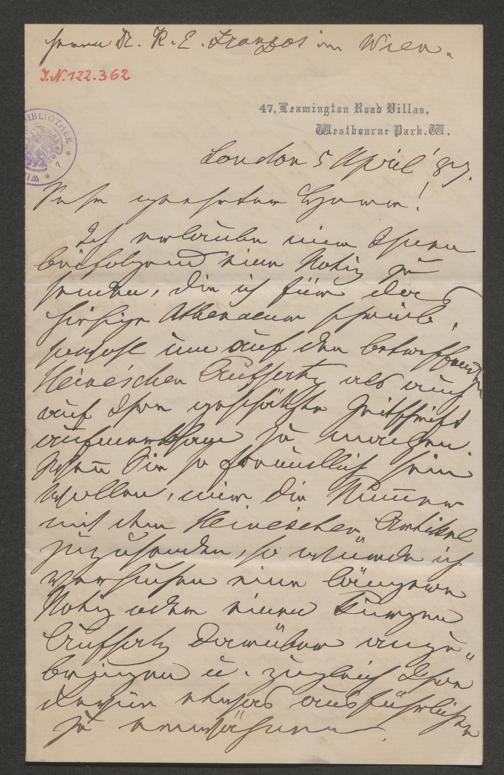 Herrn Dr. K. E. Franzos in Wien.
I.N. 122.362
BIBLIOTHEK
WIEN
47, Leamington Road Villas,
Westbourne Park. W.
London 5 April '87.
Sehr geehrter Herr!
Ich erlaube mir Ihnen
beifolgend eine Notiz zu
senden, die ich für das
hiesige Athenaeum schrieb,
sowohl um auf den betreffenden
Heineschen Aufsatz als auch
auf Ihre geschätzte Zeitschrift
aufmerksam zu machen.
Wenn Sie so freundlich sein
wollen, mir die Nummer
mit dem Heineschen Artikel
zuzusenden, so würde ich
versuchen eine längere
Notiz oder einen kurzen
Aufsatz darüber anzu-
bringen u. zugleich Ihre
etwas ausführlicher
zu erwähnen.